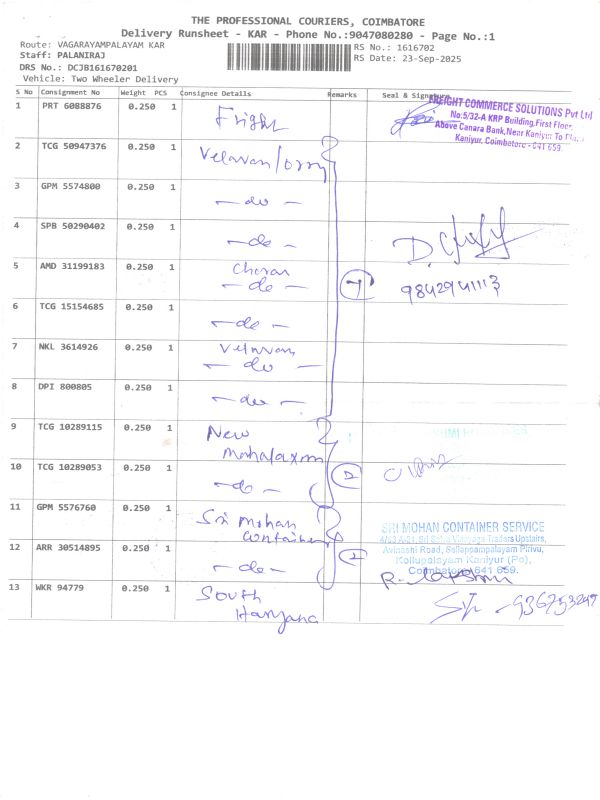 THE PROFESSIONAL COURIERS, COIMBATORE
Delivery Runsheet - KAR - Phone No.:9047080280 - Page No.:1
Route: VAGARAYAMPALAYAM KAR
RS No.: 1616702
Staff: PALANIRAJ
RS Date: 23-Sep-2025
DRS No.: DCJB161670201
Vehicle: Two Wheeler Delivery
S No Consignment No Weight PCS Consignee Details Remarks Seal & Signature
1 PRT 6088876 0.250 1 Fright
FREIGHT COMMERCE SOLUTIONS Pvt Ltd
No:5/32-A KRP Building,First Floor,
Above Canara Bank,Near Kaniyur To
Kaniyur, Coimbatore - 641 659.
2 TCG 50947376 0.250 1 Velavan lorry
3 GPM 5574800 0.250 1 - do -
4 SPB 50290402 0.250 1 - do -
5 AMD 31199183 0.250 1 Cheran
- do - 7 9842941113
6 TCG 15154685 0.250 1 - do -
7 NKL 3614926 0.250 1 Velavan
- do -
8 DPI 800805 0.250 1 - do -
9 TCG 10289115 0.250 1 New
Mahalaxmi
10 TCG 10289053 0.250 1 - do - 2
11 GPM 5576760 0.250 1 Sri Mohan
Container
SRI MOHAN CONTAINER SERVICE
Traders Upstairs,
Avinashi Road, Sellappampalayam Pirivu,
Kollupalayam Kaniyur (Po),
Coimbatore 641 659.
12 ARR 30514895 0.250 1 - do - 2
13 WKR 94779 0.250 1 South
Haryana